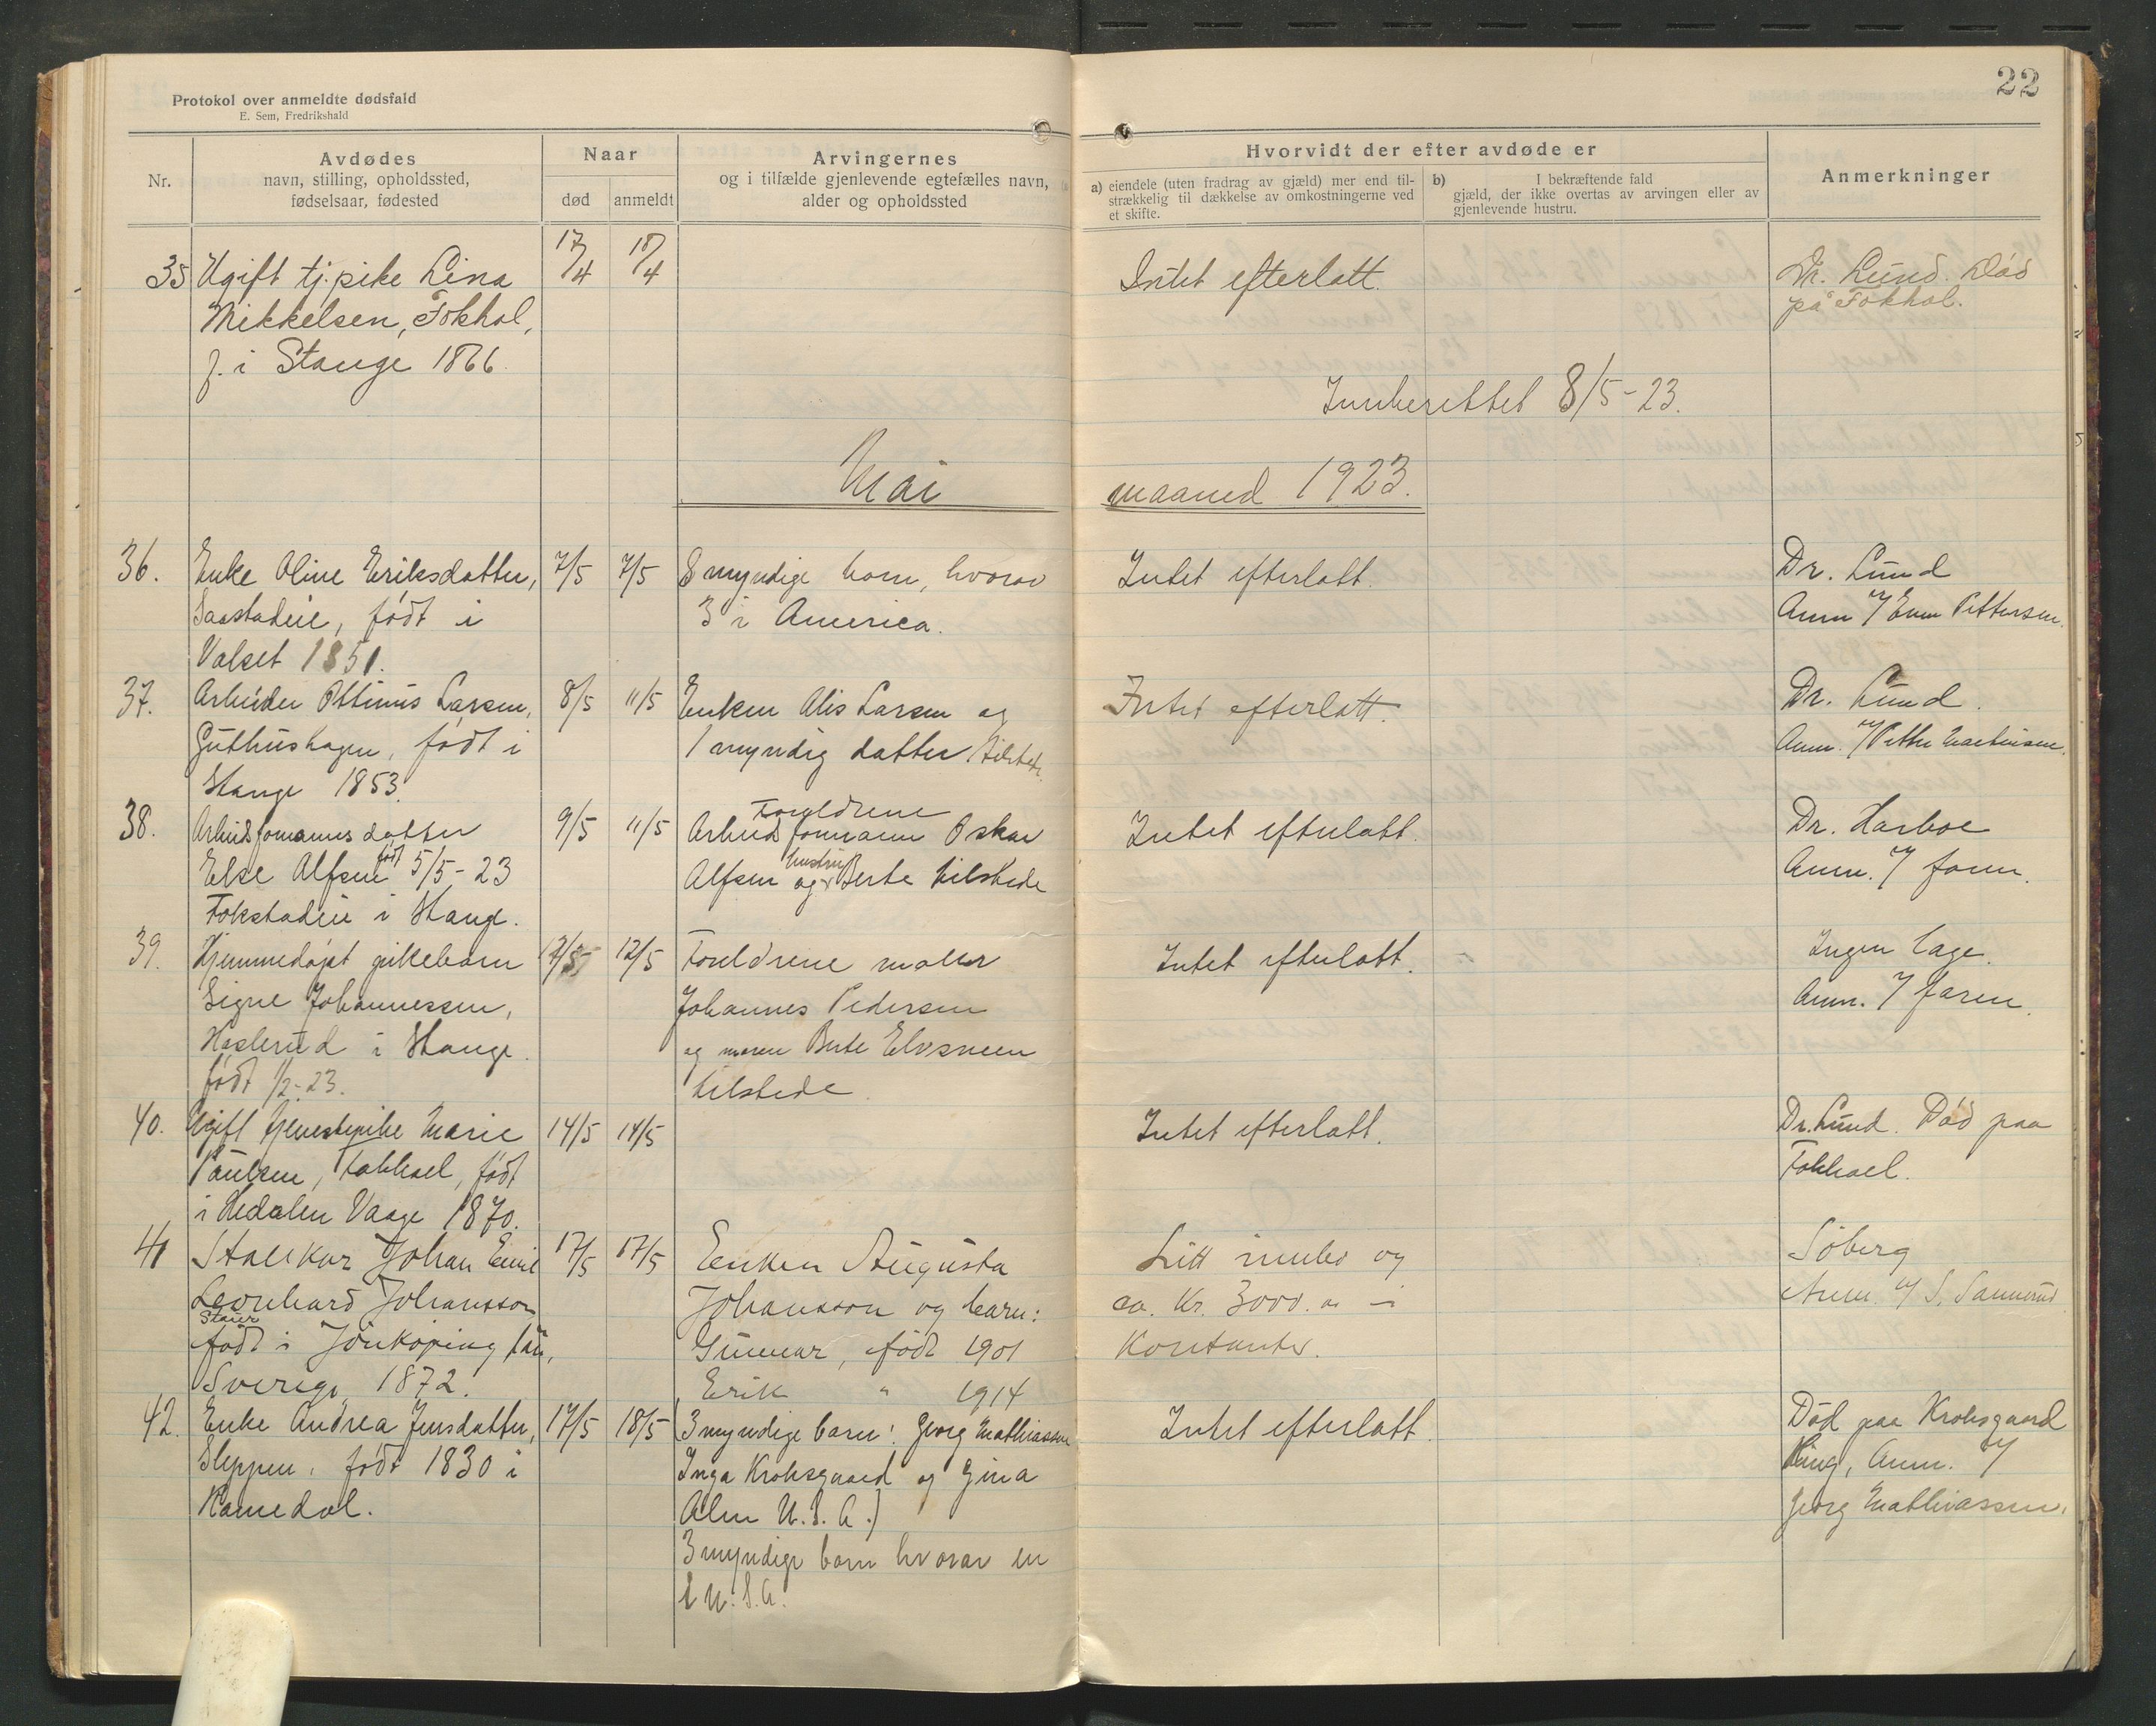 22
Protokol over anmeldte dødsfald
E. Sem, Fredrikshald
Nr.
Avdødes
navn, stilling, opholdssted,
fødselsaar, fødested
Naar
død
anmeldt
Arvingernes
og i tilfælde gjenlevende egtefælles navn,
alder og opholdssted
Hvorvidt der efter avdøde er
a) eiendele (uten fradrag av gjæld) mer end til-
strækkelig til dækkelse av omkostningerne ved
et skifte.
b) I bekræftende fald
gjæld, der ikke overtas av arvingen eller av
gjenlevende hustru.
Anmerkninger
35 Ugift tj. pike Lina
Mikkelsen, Fokhol,
f. i Stange 1866.
17/4
18/4
Intet efterlatt.
Dr. Lund. Død
på Fokhol.
Innberettet 8/5-23.
Mai maaned 1923.
36. Enke Oline Eriksdatter,
Saastadeie, født i
Valset 1851.
7/5
7/5
8 myndige barn, hvorav
3 i America.
Intet efterlatt.
Dr. Lund
Anm. v/ Even Pettersen.
37. Arbeider Ottinius Larsen,
Guthushagen, født i
Stange 1853.
8/5
11/5
Enken Alis Larsen og
1 myndig datter tilstede.
Intet efterlatt.
Dr. Lund.
Anm. v/ Petter Martinsen.
38. Arbeidsformanns datter
Else Alfsen født 5/5-23
Fokstadeie i Stange.
9/5
11/5
Foreldrene
Arbeidsformann Oskar
Alfsen og hustru Berte tilstede
Intet efterlatt.
Dr. Harboe
Anm. v/ faren.
39. Hjemmedøpt pikebarn
Signe Johannessen,
Haslerud i Stange.
født 1/2-23.
12/5
12/5
Foreldrene maler
Johannes Pedersen
og moren Berte Elvsveen
tilstede.
Intet efterlatt.
Ingen læge.
Anm. v/ faren.
40. Ugift tjenestepike Marie
Paulsen, Fokhoel, født
i Hedalen Vaage 1870.
14/5
14/5
Intet efterlatt.
Dr. Lund. Død paa
Fokhoel.
41 Stallkar Johan Emil
Leonhard Johansson
Staur
født i Jönköping län,
Sverige, 1872.
17/5
17/5
Enken Augusta
Johansson og barn:
Gunnar, født 1901
Erik " 1914
Litt innbo og
ca. Kr. 3000.00 i
Kontanter.
Söberg
Anm v/ S. Sannerud
42. Enke Andrea Jensdatter,
Sleppen, født 1830 i
Romedal.
17/5
18/5
3 myndige barn: Georg Mathiassen
Inga Krohsgaard og Gina
Alm U.S.A.)
3 myndige barn hvorav en
i U.S.A.
Intet efterlatt.
Død paa Krohsgaard
Ring, Anm. v/
Georg Mathiassen.